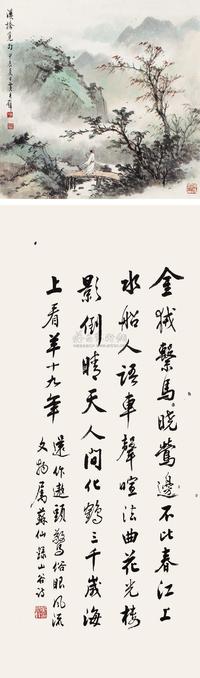 金狨繫馬曉鶯邊不比春江上
水船人語車聲喧法曲花光樓
影倒晴天人間化鶴三千歲海
上看羊十九年
還作遨頭驚俗眼風流
文物屬蘇仙錄山谷詩